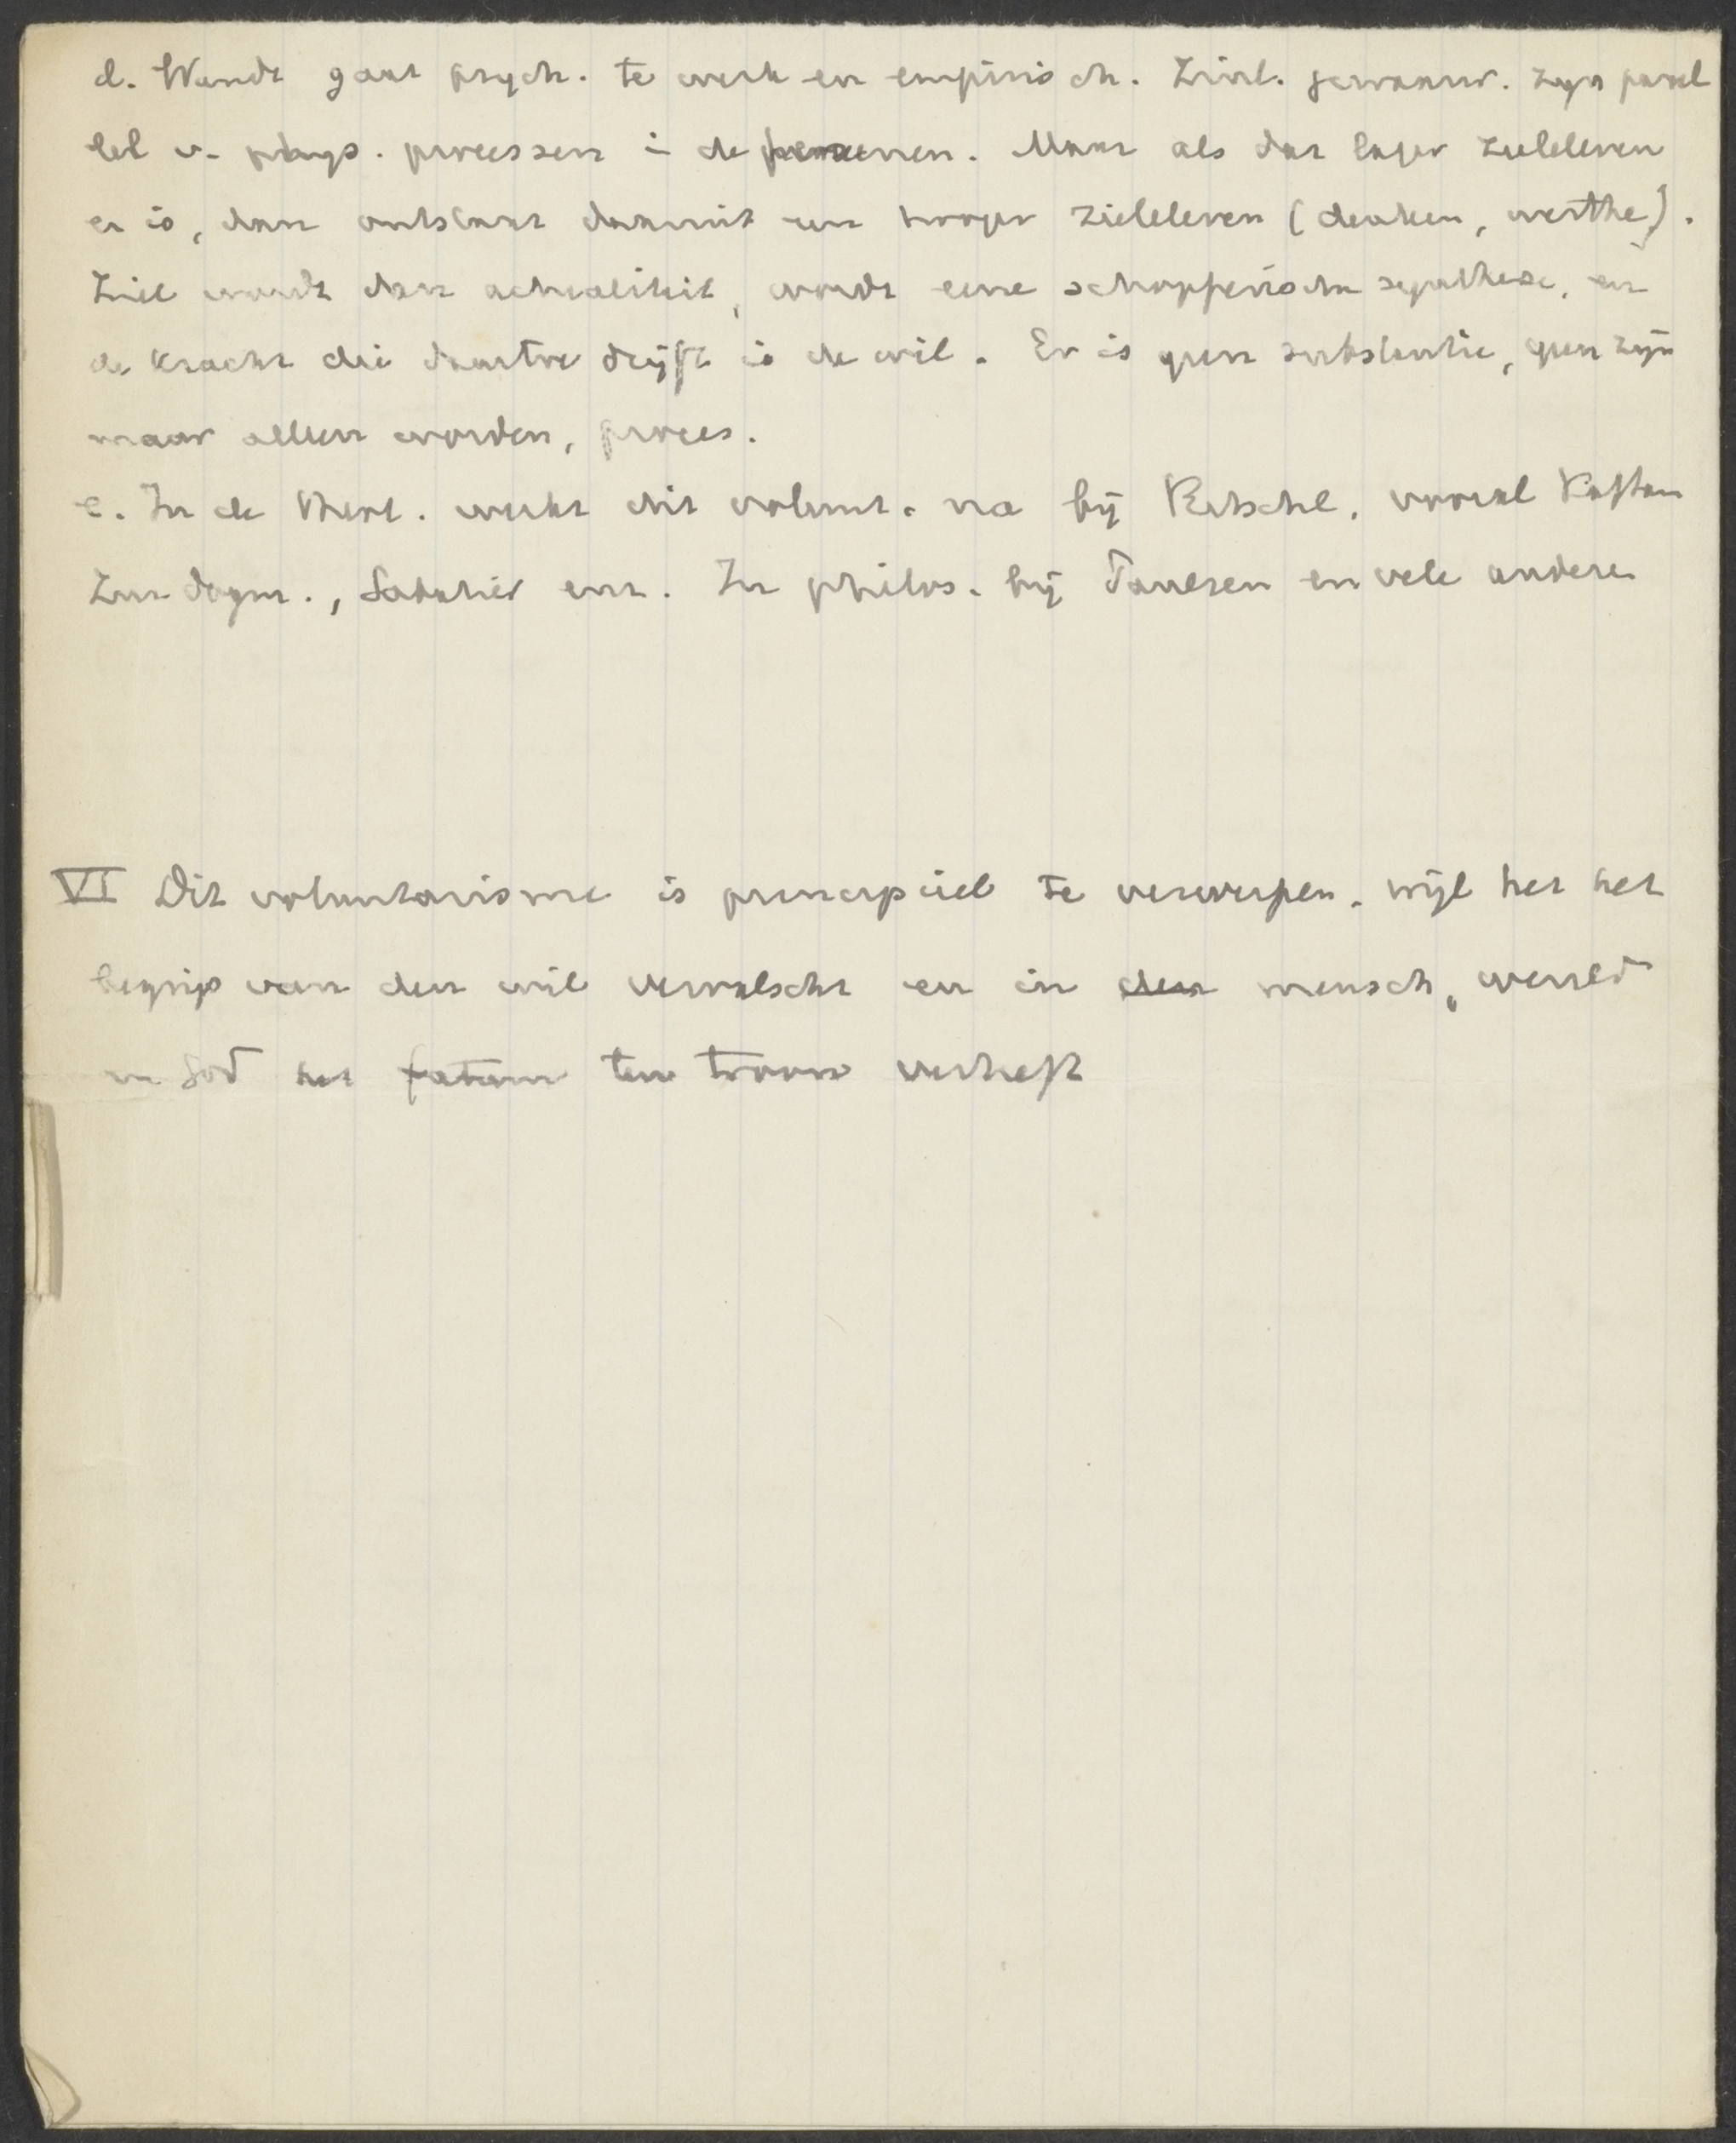 d. Wundt gaat psych. te werk en empirisch. Zinl. gewaarw. zijn paral
lel v. phys. processen i de zenuwen. Maar als dat lager zieleleven
er is, dan ontstaat daaruit een hooger zieleleven (denken, werthe).
Ziel wordt dan actualiteit, wordt eine schöpferische synthese, en
de kracht die daartoe drijft is de wil. Er is geen substantie, geen zijn
maar alleen worden, proces.
e. In de theol. werkt dit volunt. na bij Ritschl, vooral Kaftan
Zur dogm., Sabatier enz. In philos. bij Paulsen en vele anderen
VI Dit voluntarisme is principieel te verwerpen, wijl het het
begrip van den wil vervalscht en in den mensch, wereld
en God het fatum ten troon verheft